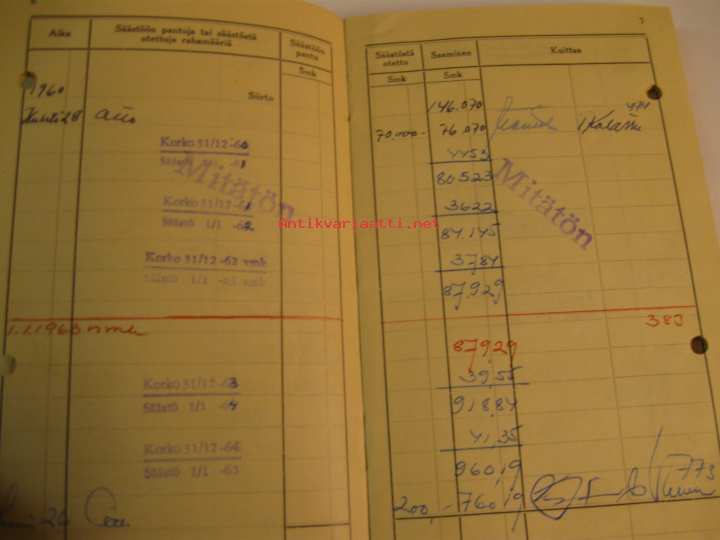 Aika
Säästöön pantuja tai säästöstä
otettuja rahamääriä
Säästöön
pantu
Smk
1960
Siirto
Huhti 28
Korko 31/12 -60
Säästö 1/1 -61
Mitätön
Korko 31/12 -61
Säästö 1/1 -62
Korko 31/12 -62 vmk
Säästö 1/1 -63 vmk
1.1.1963 nmk
Korko 31/12 -63
Säästö 1/1 -64
Korko 31/12 -64
Säästö 1/1 -65
7
Säästöstä
otettu
Smk
Saaminen
Smk
Kuittaa
146.070
70.000.- 76.070
4453
80523
Mitätön
3622
84.145
3784
87.929
383
879,29
39,55
918,84
41,35
960,19
773
200,- 760,19
Antikvariaatti.net